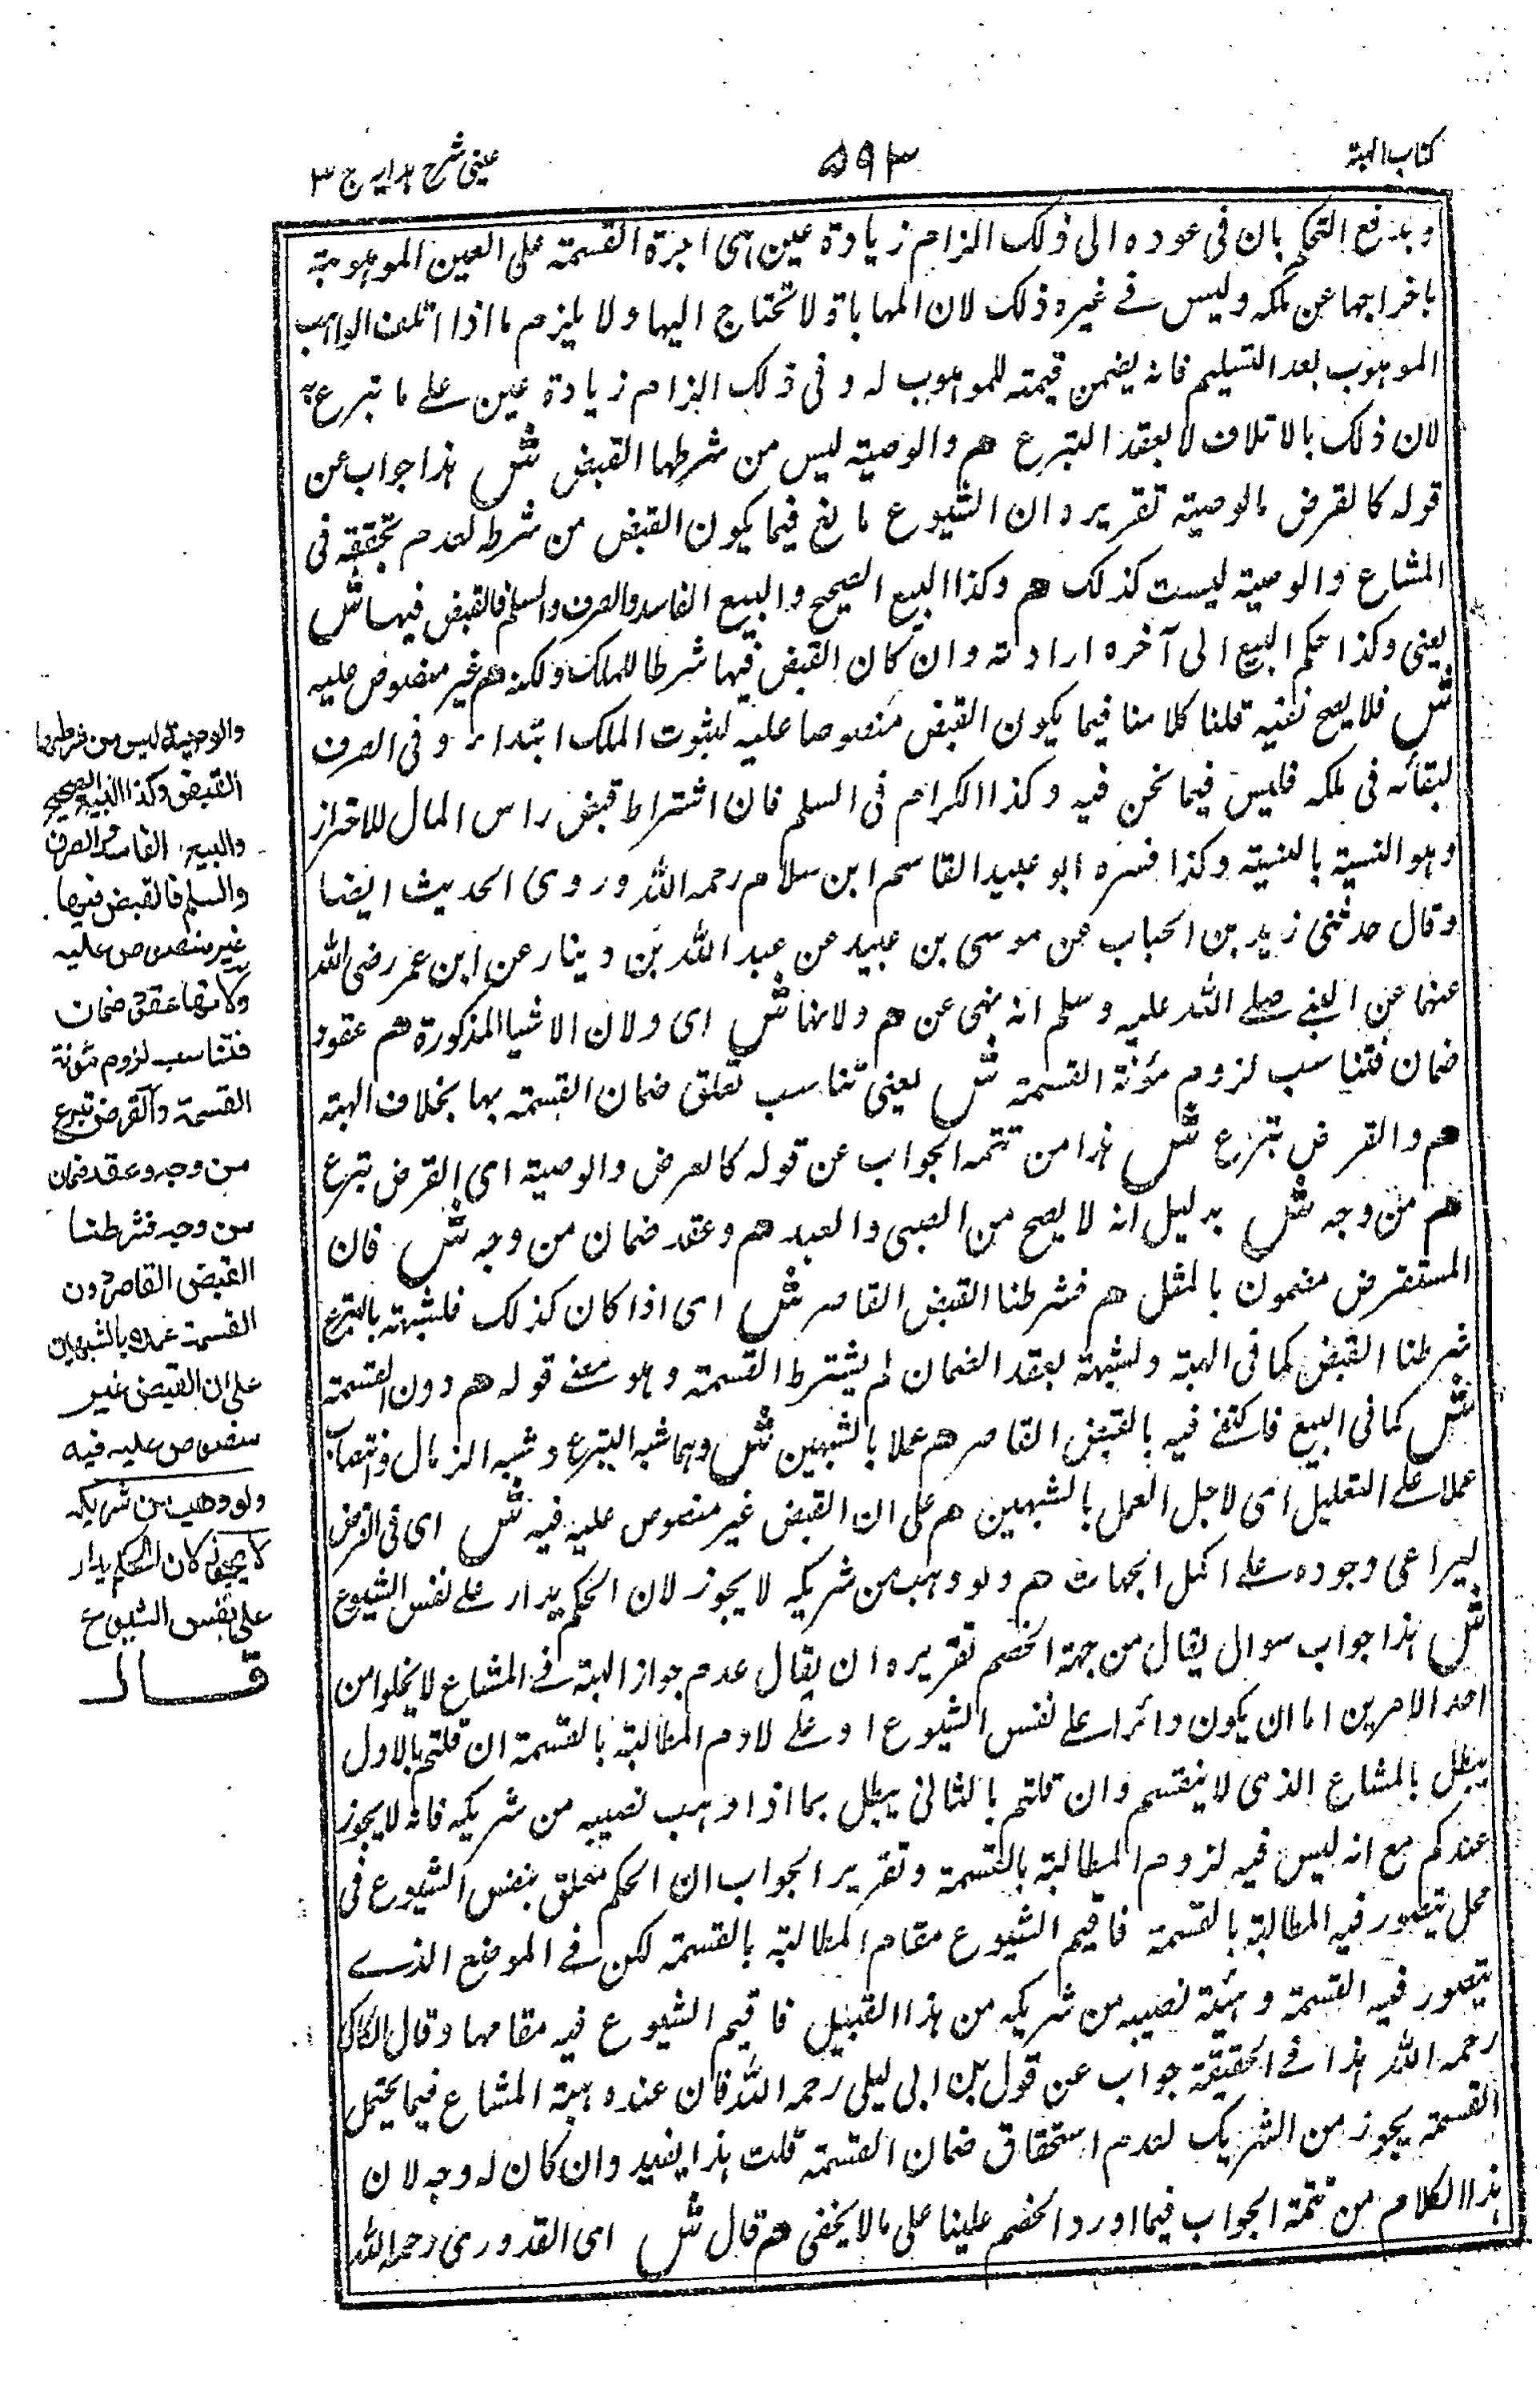 كتاب الهبة
٥٩٣
عينى شرح هدايه ج ٣
و بدفع التحكم بان فى عوده الى ذلك الزام زيادة عين هى اجرة القسمة على العين الموهوبة
باخراجها عن ملكه وليس فے غيره ذلك لان المهاياة لا تحتاج اليها ولا يلزم ما اذا اتلف الواهب
الموهوب بعد التسليم فانه يضمن قيمته للموهوب له و فى ذلك الزام زيادة عين علے ما تبرع به
لان ذلك بالاتلاف لا بعقد التبرع هم والوصية ليس من شرطها القبض ش هذا جواب عن
قوله كالقرض والوصية تقريره ان الشيوع مانع فيما يكون القبض من شرطه لعدم تحققه فى
المشاع والوصية ليست كذلك هم وكذا البيع الصحيح والبيع الفاسد والصرف والسلم فالقبض فيها ش
يعنى وكذا حكم البيع الى آخره اراد نه وان كان القبض فيها شرطا للملك ولكنه هم غير منصوص عليه
ش فلا يصح نفيه قلنا كلامنا فيما يكون القبض منصوصا عليه لثبوت الملك ابتداء و فى الصرف
لبقائه فى ملكه فليس فيما نحن فيه وكذا الكرام فى السلم فان اشتراط قبض راس المال للاحتراز
وهو النسية بالنسية وكذا فسره ابو عبيد القاسم ابن سلام رحمه الله وروى الحديث ايضا
وقال حدثنى زيد بن الحباب عن موسى بن عبيد عن عبد الله بن دينار عن ابن عمر رضى الله
عنهما عن النبے صلے الله عليه وسلم انه نهى عن هم ولانها ش اى ولان الاشيا المذكورة هم عقود
ضمان فتناسب لزوم مؤنة القسمة ش يعنى تناسب تعلق ضمان القسمة بها بخلاف الهبة
هم والقرض تبرع ش هذا من تتمه الجواب عن قوله كالعرض والوصية اى القرض تبرع
هم من وجه ش بدليل انه لا يصح من الصبى والعبد هم وعقد ضمان من وجه ش فان
المستقرض مضمون بالمثل هم فشرطنا القبض القاصر ش اى اذا كان كذلك فلشبهة بالتبرع
شرطنا القبض كما فى الهبة ولشبهة بعقد الضمان لم يشترط القسمة وهو معنے قوله هم دون القسمة
ش كما فى البيع فاكتفے فيه بالقبض القاصر هم عملا بالشبهين ش وهما شبه التبرع و شبه الزمال وانتصاب
عملا علے التعليل اى لاجل العمل بالشبهين هم على ان القبض غير منصوص عليه فيه ش اى فى القرض
ليراعى وجوده علے اكمل الجهات هم ولو وهب من شريكه لا يجوز لان الحكم يدار علے نفس الشيوع
ش هذا جواب سوال يقال من جهة الخصم تقريره ان يقال عدم جواز الهبة فے المشاع لا يخلوا من
احد الامرين اما ان يكون دائرا علے نفس الشيوع او علے لادم المطالبة بالقسمة ان قلتم بالاول
يبطل بالمشاع الذى لا ينقسم وان قلتم بالثانى يبطل بما اذا وهب نصيبه من شريكه فانه لا يجوز
عندكم مع انه ليس فيه لزوم المطالبة بالقسمة وتقرير الجواب ان الحكم متعلق بنفس الشيوع فى
محل يتصور فيه المطالبة بالقسمة فاقيم الشيوع مقام المطالبة بالقسمة لكن فے الموضع الذے
يتصور فيه القسمة وهبة نصيبه من شريكه من هذا القبيل فاقيم الشيوع فيه مقامها وقال الكاكى
رحمه الله هذا فے الحقيقة جواب عن قول بن ابى ليلى رحمه الله فان عنده هبة المشاع فيما يحتمل
القسمة يجوز من الشريك لعدم استحقاق ضمان القسمة قلت هذا يفيد وان كان له وجه لان
هذا الكلام من تتمة الجواب فيما اورد الخصم علينا على ما لا يخفى هم قال ش اى القدورى رحمه الله
والوصية ليس من شرطها
القبض وكذا البيع الصحيح
والبيع الفاسد والصرف
والسلم فالقبض فيها
غير منصوص عليه
ولانها عقود ضمان
فتناسب لزوم مؤنة
القسمة والقرض تبرع
من وجه وعقد ضمان
من وجه فشرطنا
القبض القاصر دون
القسمة عملا بالشبهين
على ان القبض غير
منصوص عليه فيه
ولو وهب من شريكه
لا يجوز لان الحكم يدار
على نفس الشيوع
قال